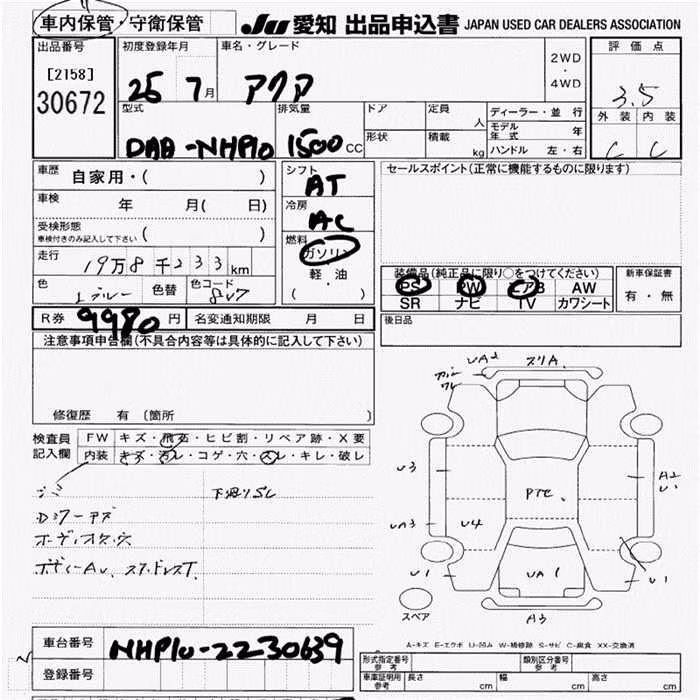 車内保管・守衛保管 JU 愛知 出品申込書 JAPAN USED CAR DEALERS ASSOCIATION
出品番号 [2158] 30672
初度登録年月 25 7月
車名・グレード アクア
2WD・4WD
評価点 3.5
外装 内装
C C
型式 DAA-NHP10
排気量 1500 CC
ドア 定員 人
形状 積載 kg
ディーラー・並行
モデル年式 年
ハンドル 左・右
車歴 自家用・( )
車検 年 月( 日)
受検形態 車検付きのみ記入して下さい ( )
走行 19万8千233km
色 色替 色コード 8V7
シフト AT
冷房 AC
燃料 ガソリン 軽・油 ( )
セールスポイント(正常に機能するものに限ります)
装備品(純正品に限り○をつけてください)
PS PW エアB AW
SR ナビ TV カワシート
新車保証書 有・無
R券 9980円 名変通知期限 月 日
後日品
注意事項申告欄(不具合内容等は具体的に記入して下さい)
修復歴 有 〔箇所 〕
検査員記入欄 FW キズ・飛石・ヒビ割・リペア跡・X要
内装 キズ・汚レ・コゲ・穴・スレ・キレ・破レ
UA2 スリA
U3 A2 U1
PTC.
UA3 U4
U1 UA1 U1
スペア A3
A-キズ E-エクボ U-凹み W-補修跡 S-サビ C-腐食 XX-交換済
車台番号 NHP10-2230639
登録番号
形式指定番号 参考 類別区分番号 参考
車庫証明用 参考 長さ cm 幅 cm 高さ cm